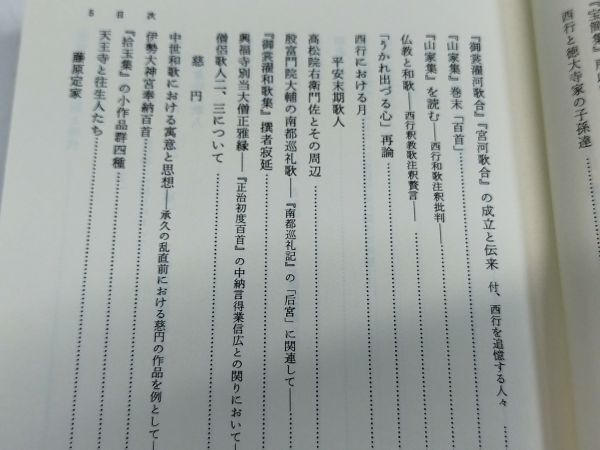 『宝簡集』所
西行と徳大寺家の子孫達
『御裳濯河歌合』『宮河歌合』の成立と伝来 付、西行を追憶する人々
『山家集』巻末「百首」
『山家集』を読む――西行和歌注釈批判――
仏教と和歌――西行釈教歌注釈贅言――
「うかれ出づる心」再論
西行における月
平安末期歌人
高松院右衛門佐とその周辺
殷富門院大輔の南都巡礼歌――『南都巡礼記』の「后宮」に関連して――
『御裳濯和歌集』撰者寂延
興福寺別当大僧正雅縁――『正治初度百首』の中納言得業信広との関りにおいて――
僧侶歌人二、三について
慈円
中世和歌における寓意と思想――承久の乱直前における慈円の作品を例として――
伊勢大神宮奉納百首
『拾玉集』の小作品群四種
天王寺と往生人たち
藤原定家
目次
5